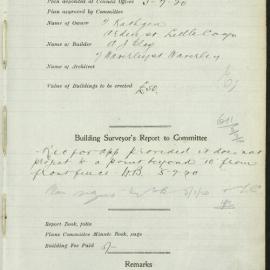 Plan deposited at Council Office 3-9-20
Plan approved by Committee
Name of Owner T Rathgen
Arden st Little Coogee
Name of Builder A J Clay
Waverley st Waverley
Name of Architect
Value of Buildings to be erected £50
Building Surveyor's Report to Committee
Rec for app provided it does not
project to a point beyond 10 from
front fence W.B. 5 9 20
Report Book, folio
Plans Committee Minute Book, page
Building Fee Paid 5/-
Remarks